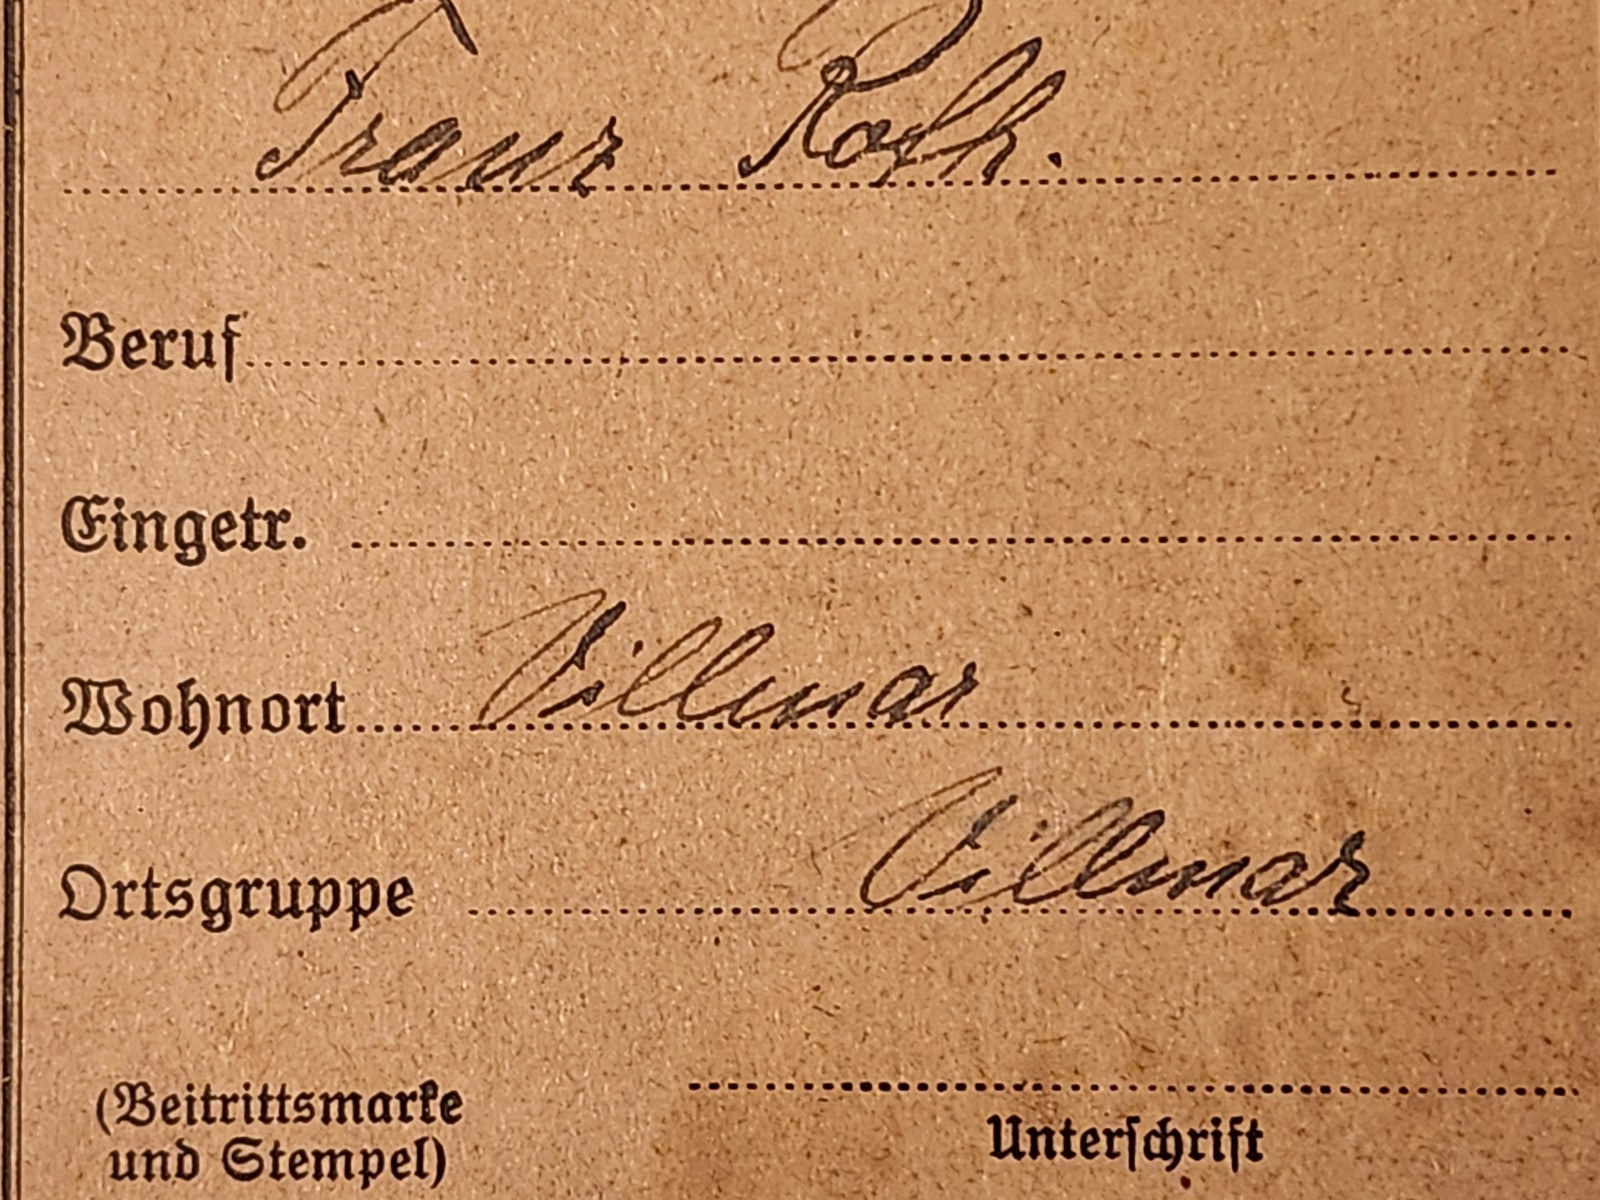 Franz Roth.
Beruf
Eingetr.
Wohnort Villmar
Ortsgruppe Villmar
(Beitrittsmarke
und Stempel)
Unterschrift